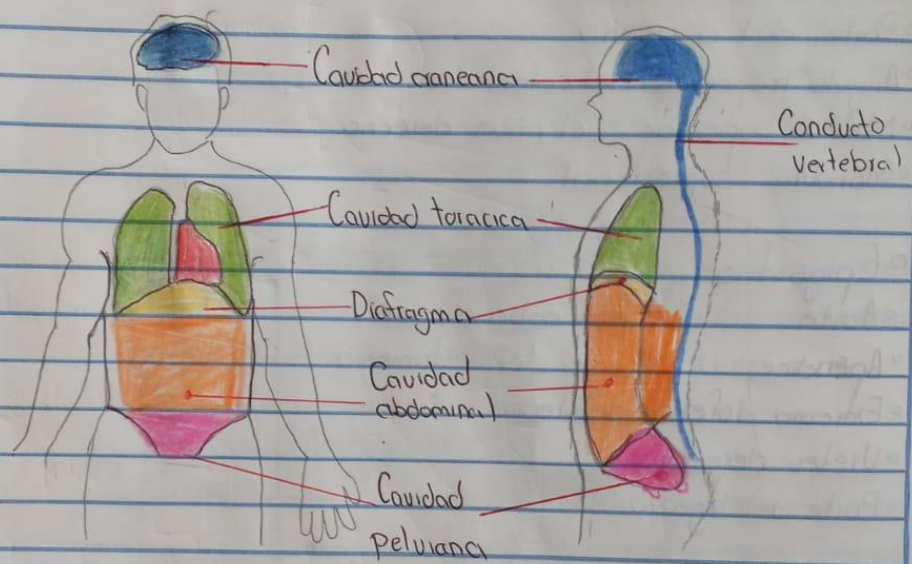 Cavidad craneana
Conducto
vertebral
Cavidad toracica
Diafragma
Cavidad
abdominal
Cavidad
pelviana